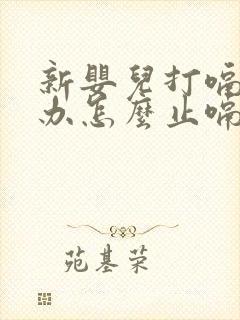 新嬰兒打嗝
办怎麼止嗝
苑基荣